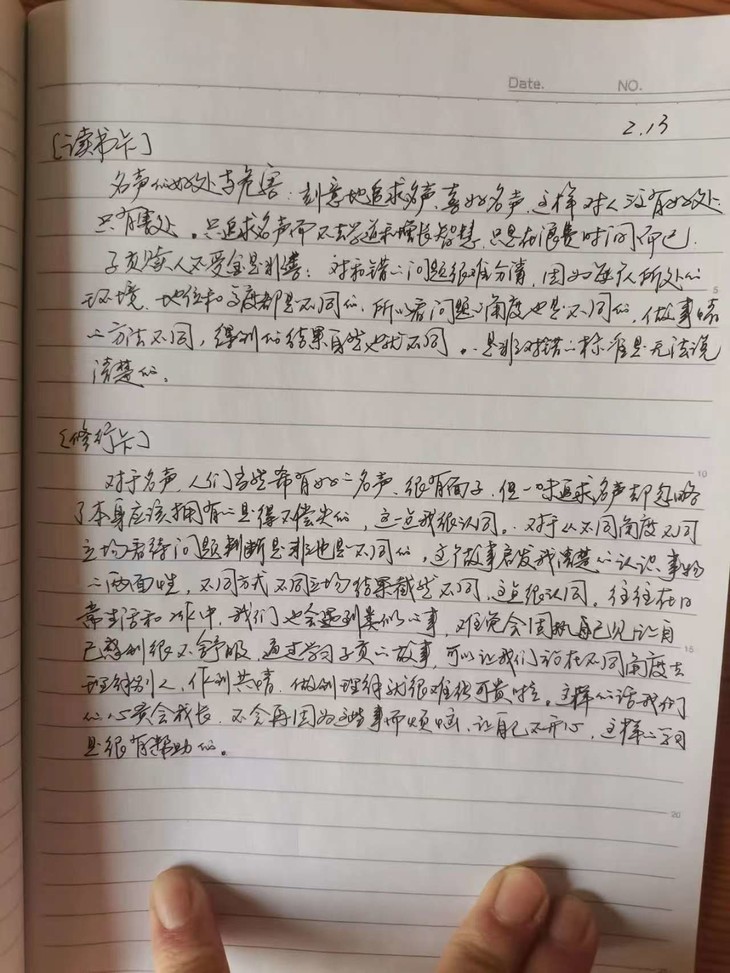 Date.
NO.
2.13
[读书卡]
名声的好处与危害:刻意地追求名声,喜好名声,这样对人没有好处
只有害处。只追求名声而不去学道和增长智慧,只是在浪费时间而已.
子贡赎人不受金是非善:对和错的问题很难分清,因为每个人所处的
环境、地位和高度都是不同的,所以看问题的角度也是不同的,做事情
的方法不同,得到的结果自然也就不同。是非对错的标准是无法说
清楚的。
5
[修行卡]
10
对于名声,人们当然希有好的名声,很有面子,但一味追求名声却忽略
了本身应该拥有的是得不偿失的,这一点我很认同。对于从不同角度不同
立场看待问题判断是非也是不同的,这个故事启发我清楚的认识,事物
的两面性,不同方式不同立场结果截然不同,这点很认同。往往在日
常生活和工作中,我们也会遇到类似的事,难免会固执己见让自
15
己感到很不舒服,通过学习子贡的故事,可以让我们站在不同角度去
理解别人,做到共情,做到理解就很难能可贵啦。这样的话我们
的心量会成长,不会再因为这些事而烦恼,让自己不开心,这样的学习
是很有帮助的。
20